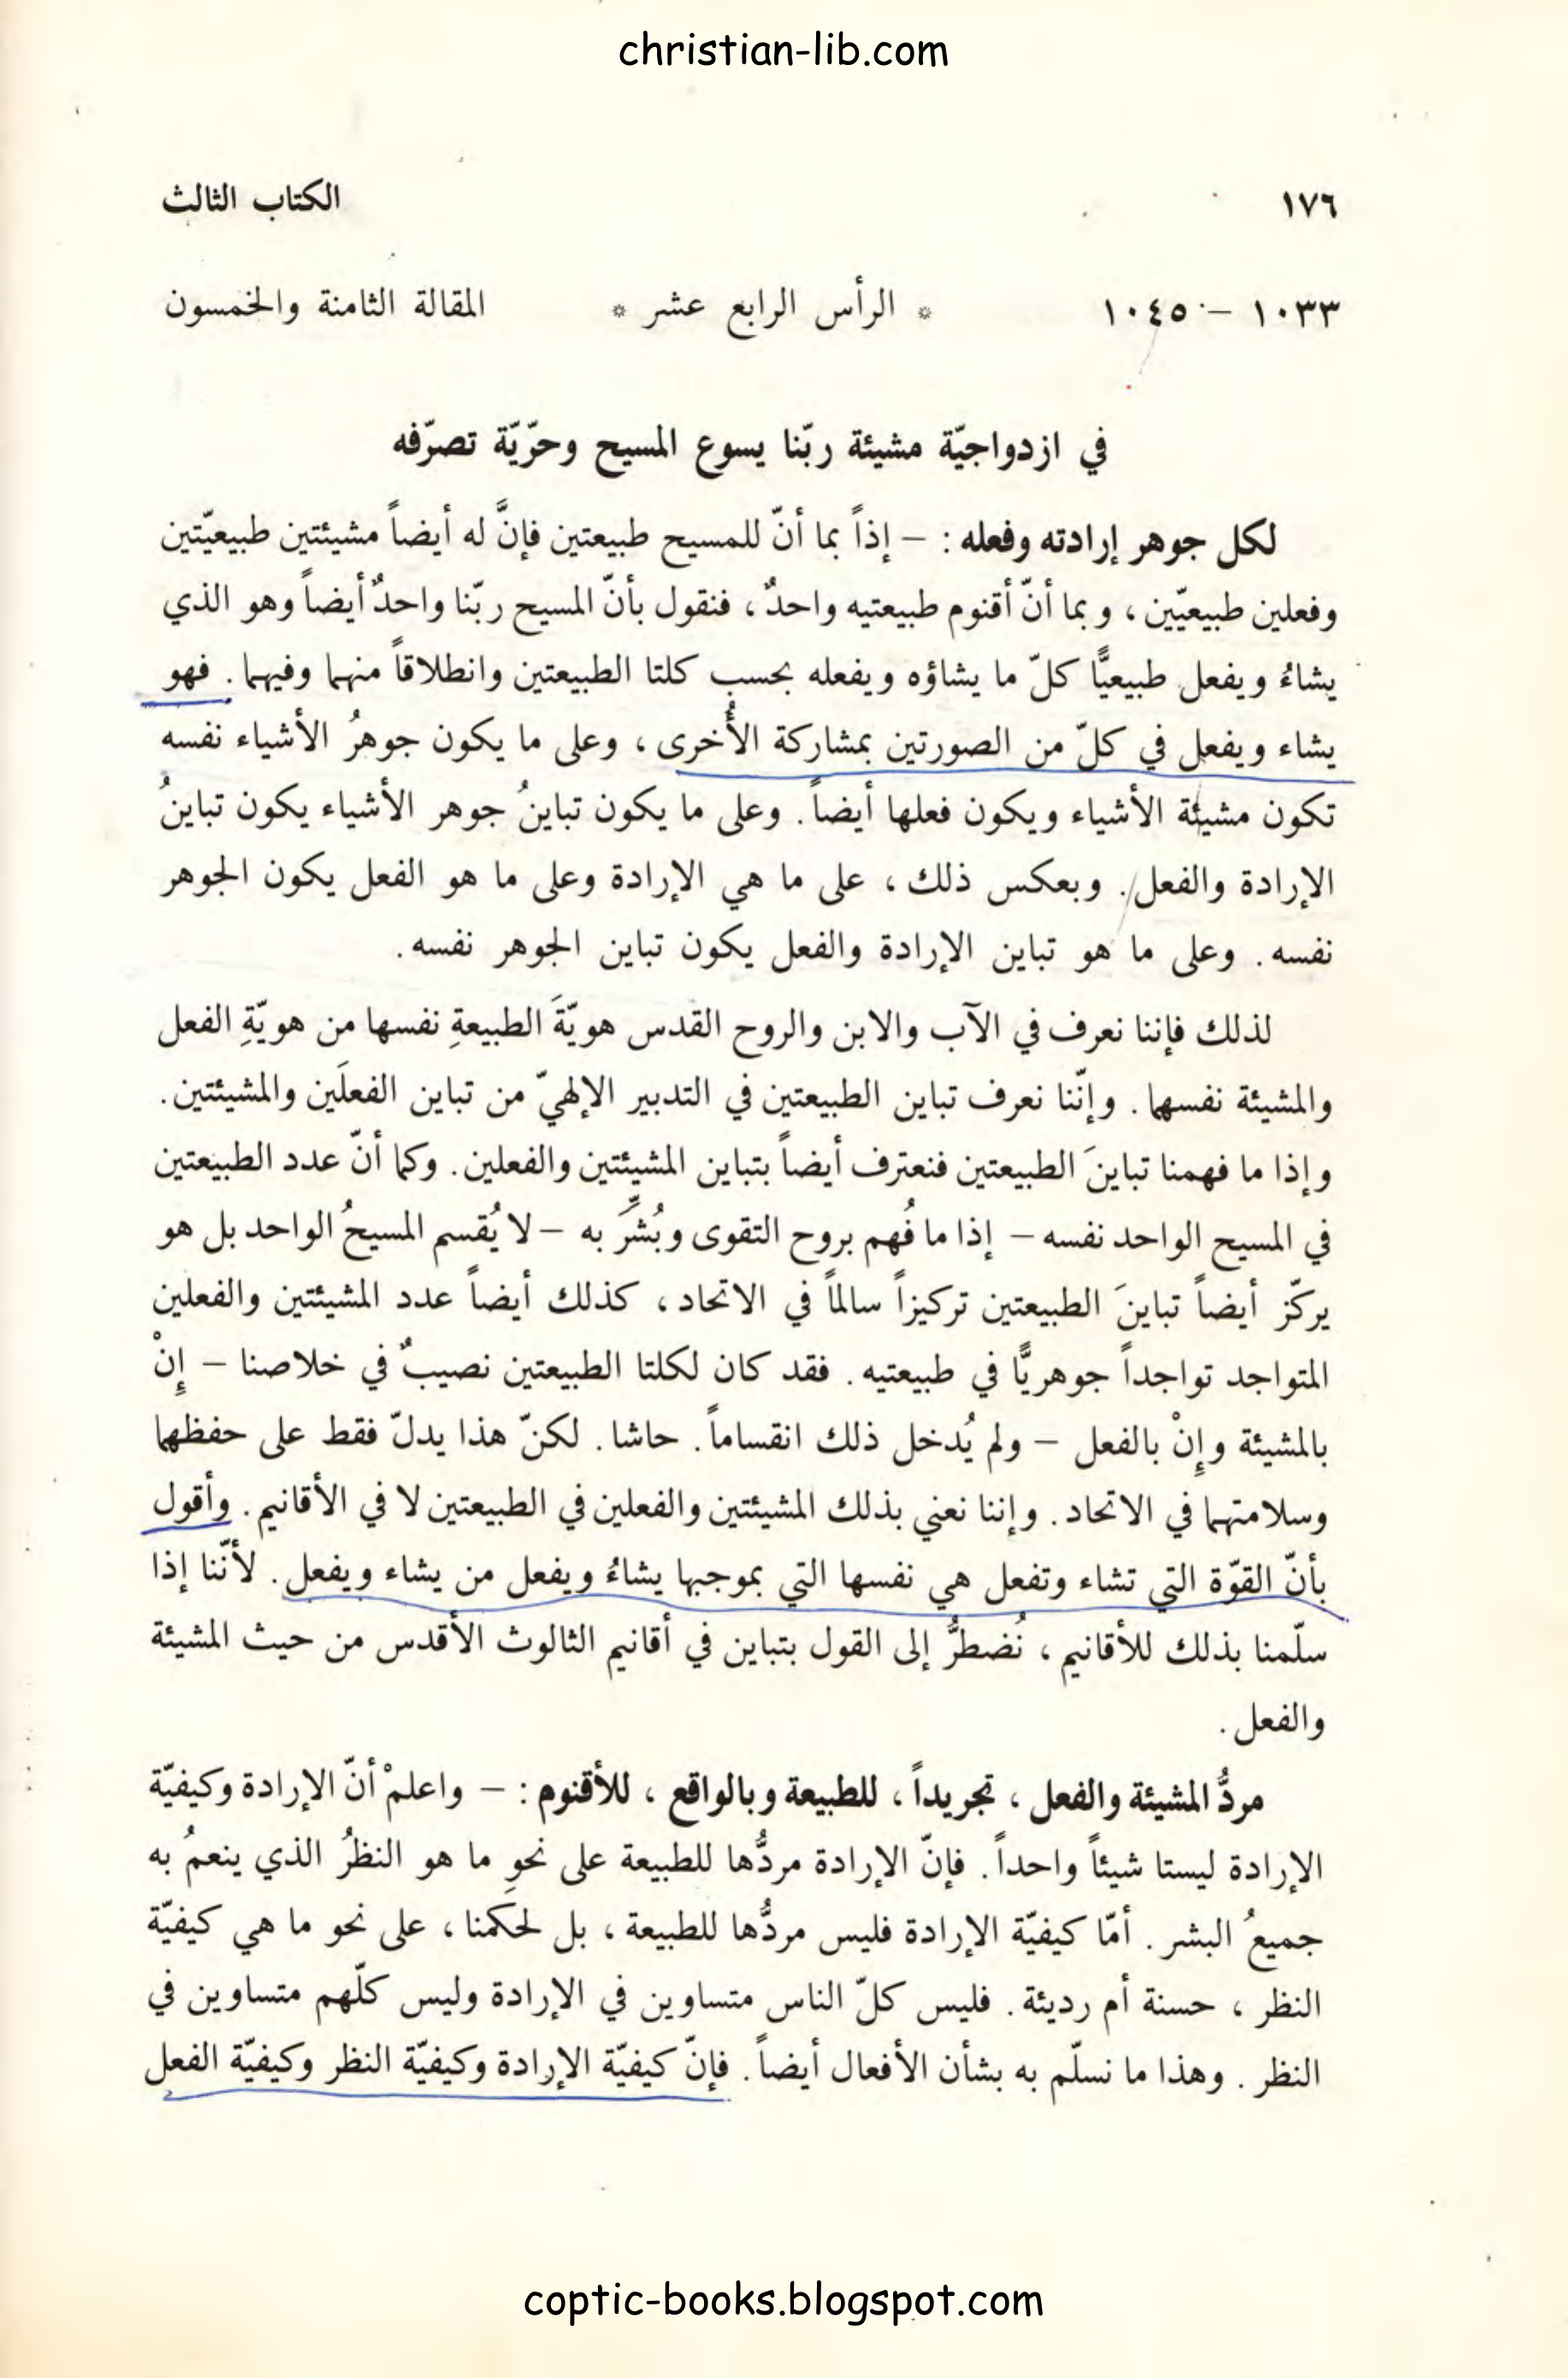 christian-lib.com
١٧٦ الكتاب الثالث
١٠٣٣ – ١٠٤٥ * الرأس الرابع عشر * المقالة الثامنة والخمسون
في ازدواجيّة مشيئة ربّنا يسوع المسيح وحرّيّة تصرّفه
لكل جوهر إرادته وفعله : – إذاً بما أنّ للمسيح طبيعتين فإنَّ له أيضاً مشيئتين طبيعيّتين
وفعلين طبيعيّين ، وبما أنّ أقنوم طبيعتيه واحدٌ ، فنقول بأنّ المسيح ربّنا واحدٌ أيضاً وهو الذي
يشاءُ ويفعل طبيعيًّا كلّ ما يشاؤه ويفعله بحسب كلتا الطبيعتين وانطلاقاً منهما وفيهما . فهو
يشاء ويفعل في كلّ من الصورتين بمشاركة الأُخرى ، وعلى ما يكون جوهرُ الأشياء نفسه
تكون مشيئة الأشياء ويكون فعلها أيضاً . وعلى ما يكون تباينُ جوهر الأشياء يكون تباينُ
الإرادة والفعل . وبعكس ذلك ، على ما هي الإرادة وعلى ما هو الفعل يكون الجوهر
نفسه . وعلى ما هو تباين الإرادة والفعل يكون تباين الجوهر نفسه .
لذلك فإننا نعرف في الآب والابن والروح القدس هويّةَ الطبيعةِ نفسها من هويّةِ الفعل
والمشيئة نفسهما . وإنّنا نعرف تباين الطبيعتين في التدبير الإلهيّ من تباين الفعلَين والمشيئتين .
وإذا ما فهمنا تباينَ الطبيعتين فنعترف أيضاً بتباين المشيئتين والفعلين . وكما أنّ عدد الطبيعتين
في المسيح الواحد نفسه – إذا ما فُهم بروح التقوى وبُشِّرَ به – لا يُقسم المسيحُ الواحد بل هو
يركّز أيضاً تباينَ الطبيعتين تركيزاً سالماً في الاتحاد ، كذلك أيضاً عدد المشيئتين والفعلين
المتواجد تواجداً جوهريًّا في طبيعتيه . فقد كان لكلتا الطبيعتين نصيبٌ في خلاصنا – إِنْ
بالمشيئة وإِنْ بالفعل – ولم يُدخل ذلك انقساماً . حاشا . لكنّ هذا يدلّ فقط على حفظهما
وسلامتهما في الاتحاد . وإننا نعني بذلك المشيئتين والفعلين في الطبيعتين لا في الأقانيم . وأقول
بأنّ القوّة التي تشاء وتفعل هي نفسها التي بموجبها يشاءُ ويفعل من يشاء ويفعل . لأنّنا إذا
سلّمنا بذلك للأقانيم ، نُضطرُّ إلى القول بتباين في أقانيم الثالوث الأقدس من حيث المشيئة
والفعل .
مردُّ المشيئة والفعل ، تجريداً ، للطبيعة وبالواقع ، للأقنوم : – واعلمْ أنّ الإرادة وكيفيّة
الإرادة ليستا شيئاً واحداً . فإنّ الإرادة مردُّها للطبيعة على نحوِ ما هو النظرُ الذي ينعمُ به
جميعُ البشر . أمّا كيفيّة الإرادة فليس مردُّها للطبيعة ، بل لحكمنا ، على نحو ما هي كيفيّة
النظر ، حسنة أم رديئة . فليس كلّ الناس متساوين في الإرادة وليس كلّهم متساوين في
النظر . وهذا ما نسلّم به بشأن الأفعال أيضاً . فإنّ كيفيّة الإرادة وكيفيّة النظر وكيفيّة الفعل
coptic-books.blogspot.com